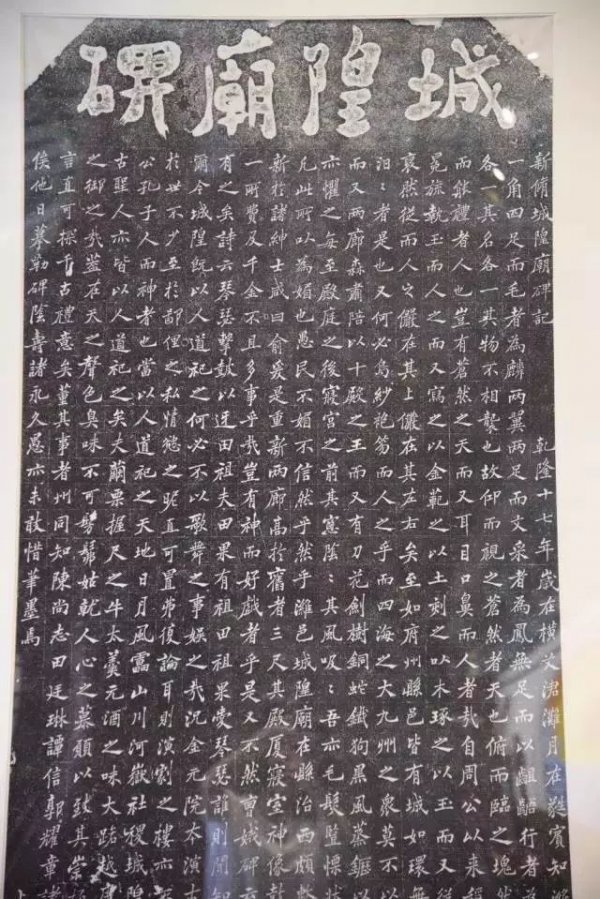 城隍廟碑
新脩城隍廟碑記 乾隆十七年歲在橫艾涒灘月在蕤賓知濰
一角四足而毛者為麟兩翼兩足而文采者為鳳無足而以齟齬行者為
各一其名各一其物不相襲也故仰而視之蒼然者天也俯而臨之塊然
而能禮者人也豈有蒼然之天而又耳目口鼻而人者哉自周公以來稱
冕旒執玉而人之而又寫之以金範之以土刻之以木琢之以玉而又從
裒然從而人之儼在其上儼在其左右矣至如府州縣邑皆有城如環無
汩汩者是也又何必烏紗袍笏而人之乎而四海之大九州之衆莫不以
而又兩廊森肅陪以十殿之王而又有刀花劍樹銅蛇鐵狗黑風蒸鑩以
亦懼之每至殿庭之後寢宮之前其窻陰〻其風吸〻吾亦毛髮豎慄狀
凡此所以為媚也愚民不媚不信然乎然乎濰邑城隍廟在縣治西頗整
新於諸紳士咸曰俞爰是重新兩廊高於舊者三尺其殿厦寢室神像鼓
一所費及千金不且多事乎哉豈有神而好戲者乎是又不然曹娥碑云
有之矣詩云琴瑟擊鼓以迓田祖夫田果有祖田祖果愛琴瑟誰則聞知
爾今城隍既以人道祀之何必不以歌舞之事娛之哉況金元院本演古
於世不少至於鄙俚之私情慾之昵直可置弗復論耳則演劇之樓亦
公孔子人而神者也當以人道祀之天地日月風雷山川河嶽社稷城隍
古聖人亦皆以人道祀之矣夫繭栗握尺之牛太羹元酒之味大路越
之御之哉蓋在天之聲色臭味不可髣髴姑就人心之慕願以致其崇
言直可探千古禮意矣董其事者州同知陳尚志田廷琳譚信郭耀章諸
俟他日摹勒碑陰壽諸永久愚亦未敢惜筆墨焉